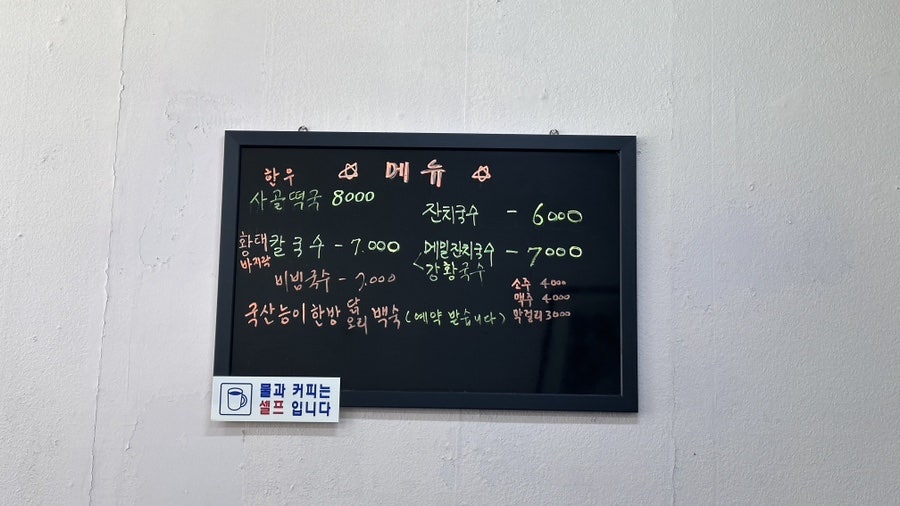 메뉴
한우
사골떡국 8000
잔치국수 - 6000
황태
바지락
칼국수 - 7.000
메밀잔치국수 - 7000
강황국수
비빔국수 - 7.000
소주 4000
맥주 4000
막걸리 3000
국산능이한방 닭 오리 백숙 (예약 받습니다)
물과 커피는
셀프 입니다